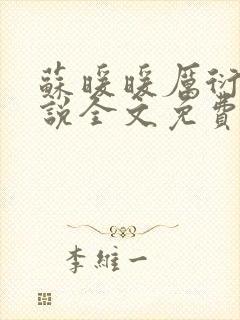 蘇暖暖厲衍
說全文免費
李維一